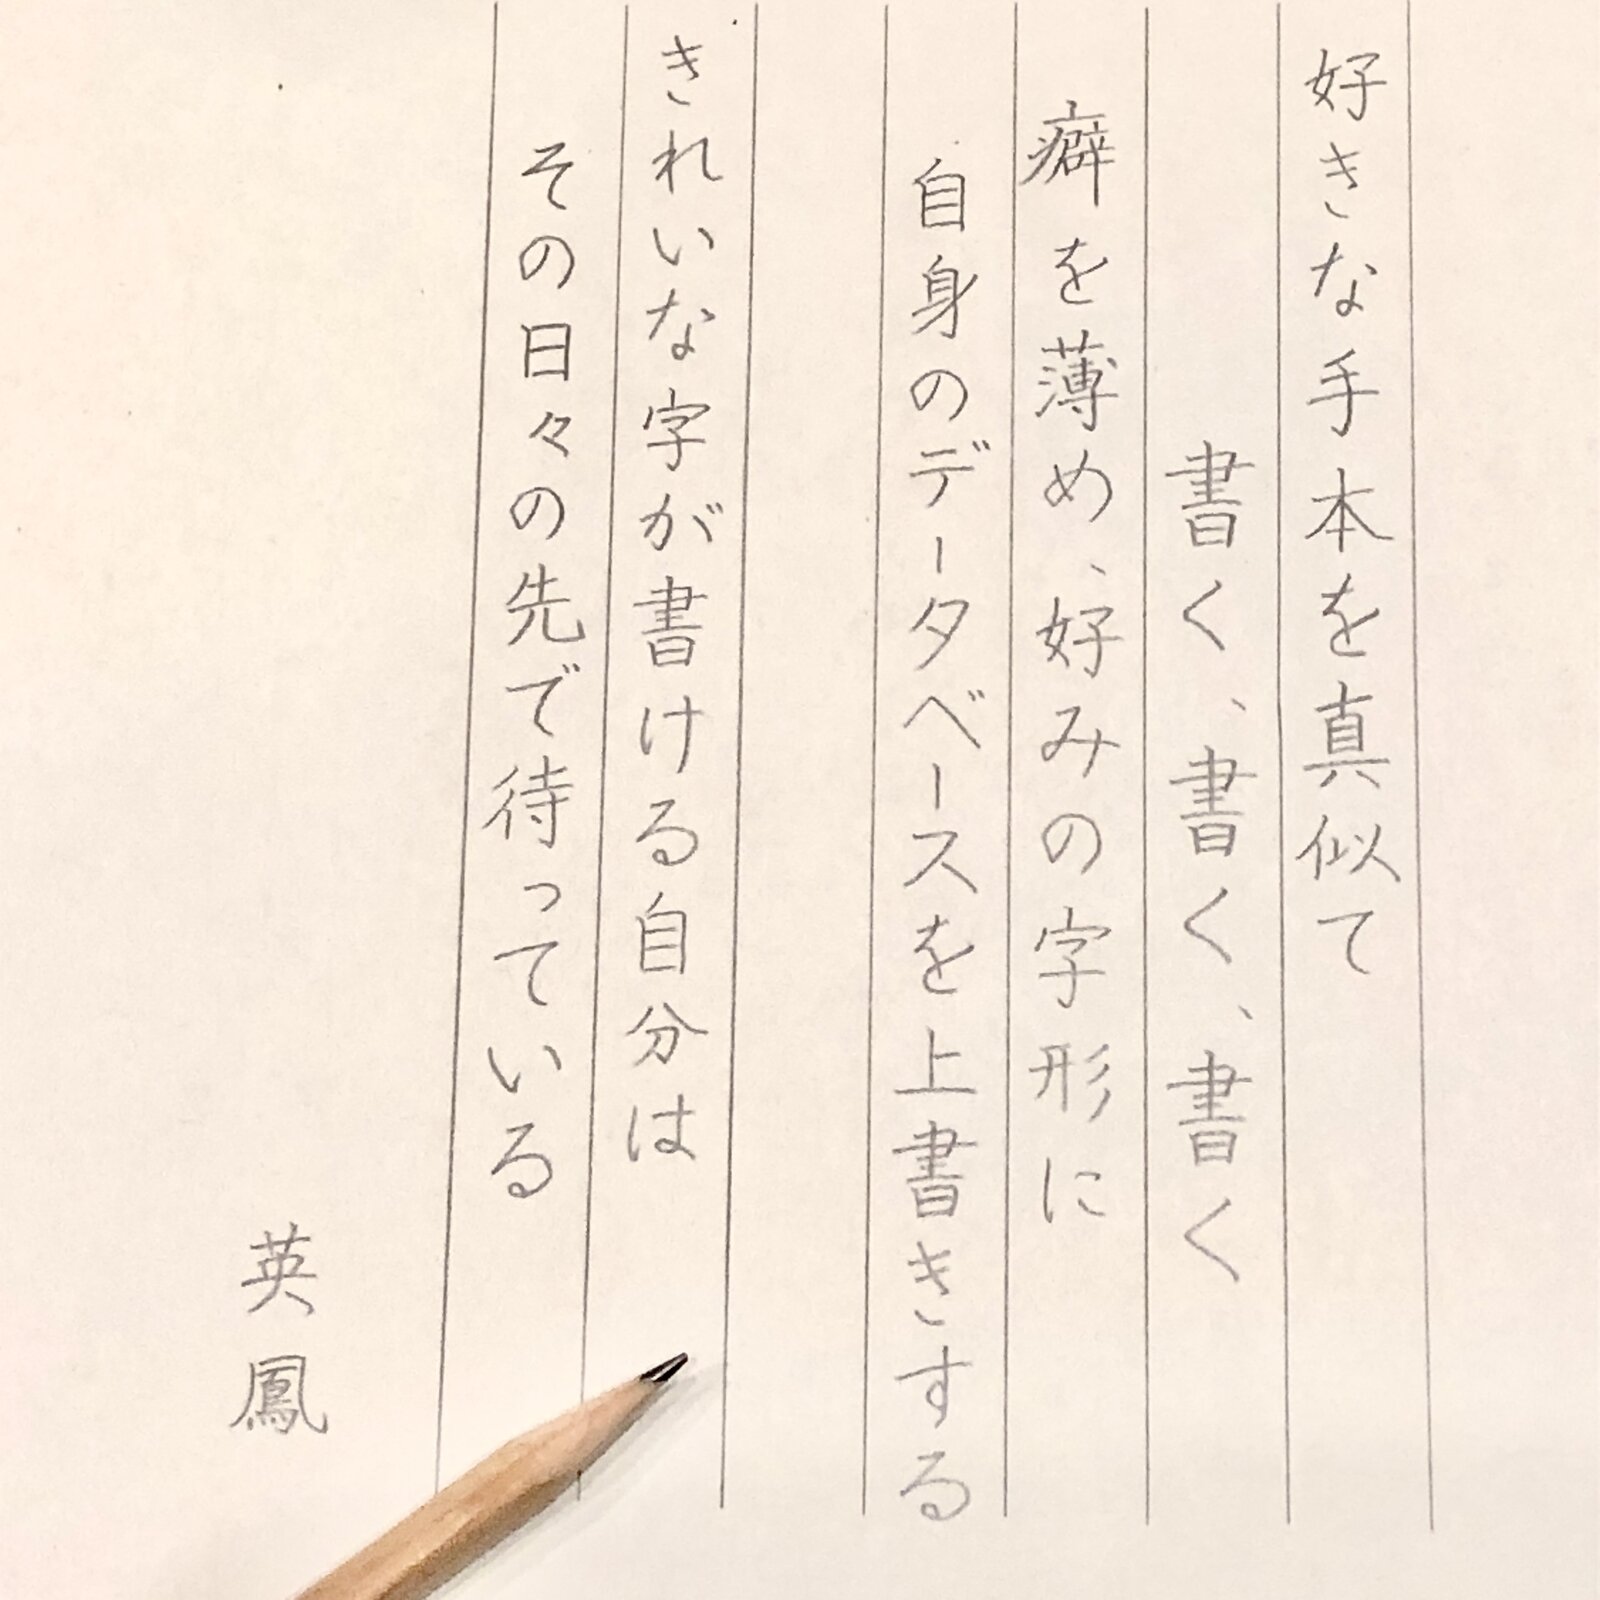 好きな手本を真似て
書く、書く、書く
癖を薄め、好みの字形に
自身のデータベースを上書きする
きれいな字が書ける自分は
その日々の先で待っている
英鳳